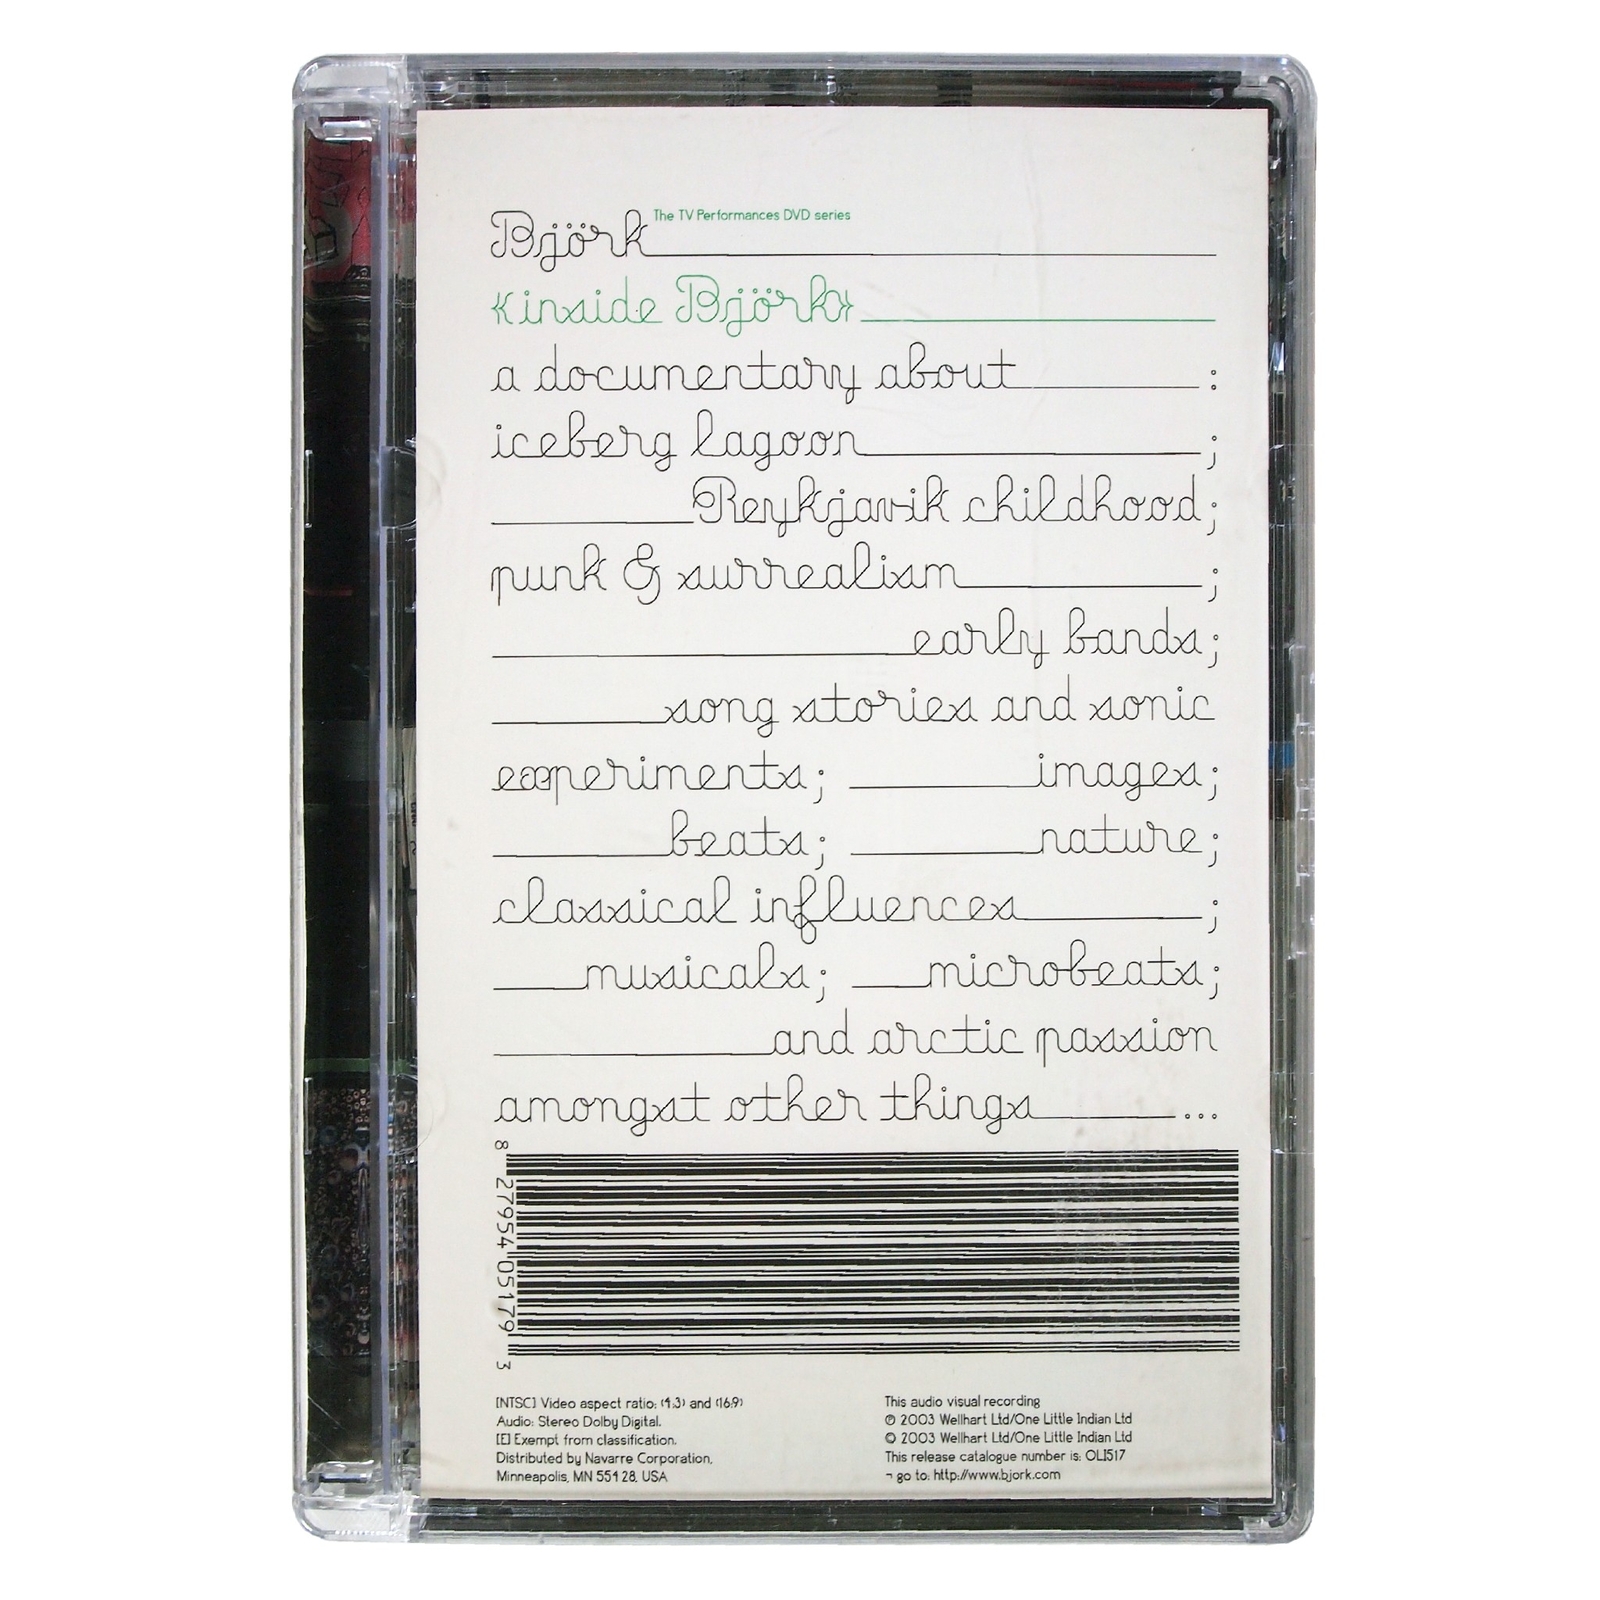 The TV Performances DVD series
Björk
«inside Björk»
a documentary about :
iceberg lagoon ;
Reykjavik childhood;
punk & surrealism ;
early bands;
song stories and sonic
experiments; images;
beats; nature;
classical influences ;
musicals; microbeats;
and arctic passion
amongst other things ...
8 27954 05179 3
[NTSC] Video aspect ratio: (4:3) and (16:9)
Audio: Stereo Dolby Digital.
[E] Exempt from classification.
Distributed by Navarre Corporation,
Minneapolis, MN 554 28, USA
This audio visual recording
℗ 2003 Wellhart Ltd/One Little Indian Ltd
© 2003 Wellhart Ltd/One Little Indian Ltd
This release catalogue number is: OLI517
¬ go to: http://www.bjork.com